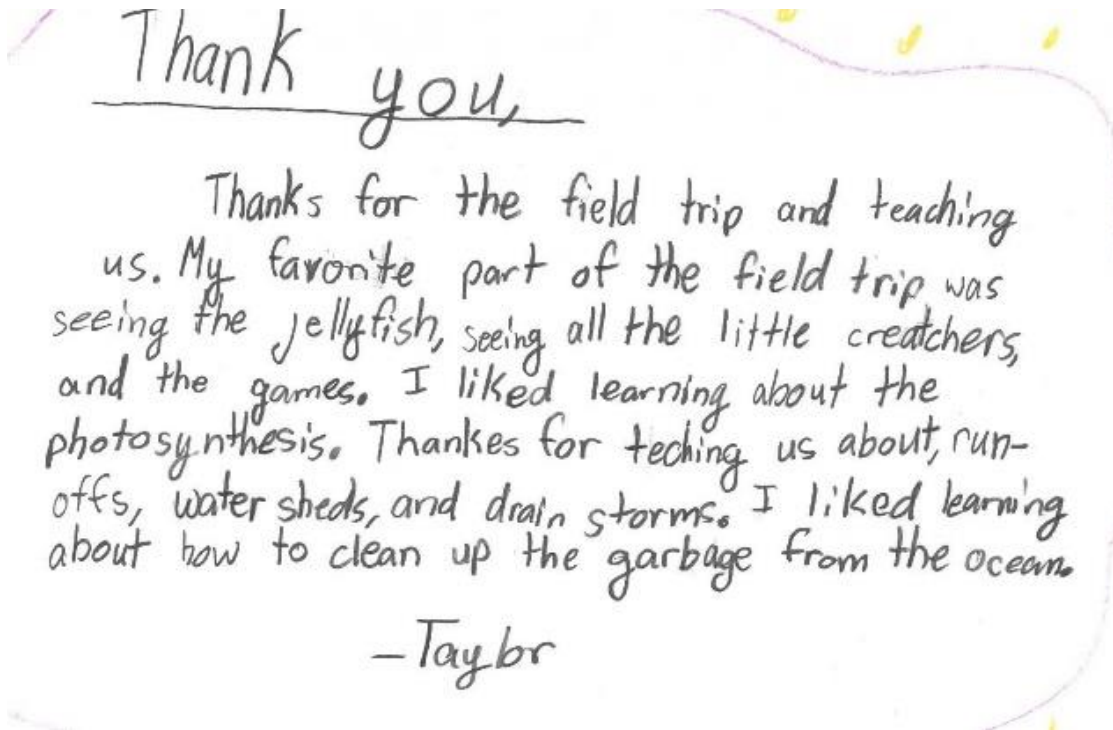 Thank you,
Thanks for the field trip and teaching
us. My favorite part of the field trip was
seeing the jellyfish, seeing all the little creatchers,
and the games. I liked learning about the
photosynthesis. Thankes for teching us about, run-
offs, water sheds, and drain storms. I liked learning
about how to clean up the garbage from the ocean.
-Taylor